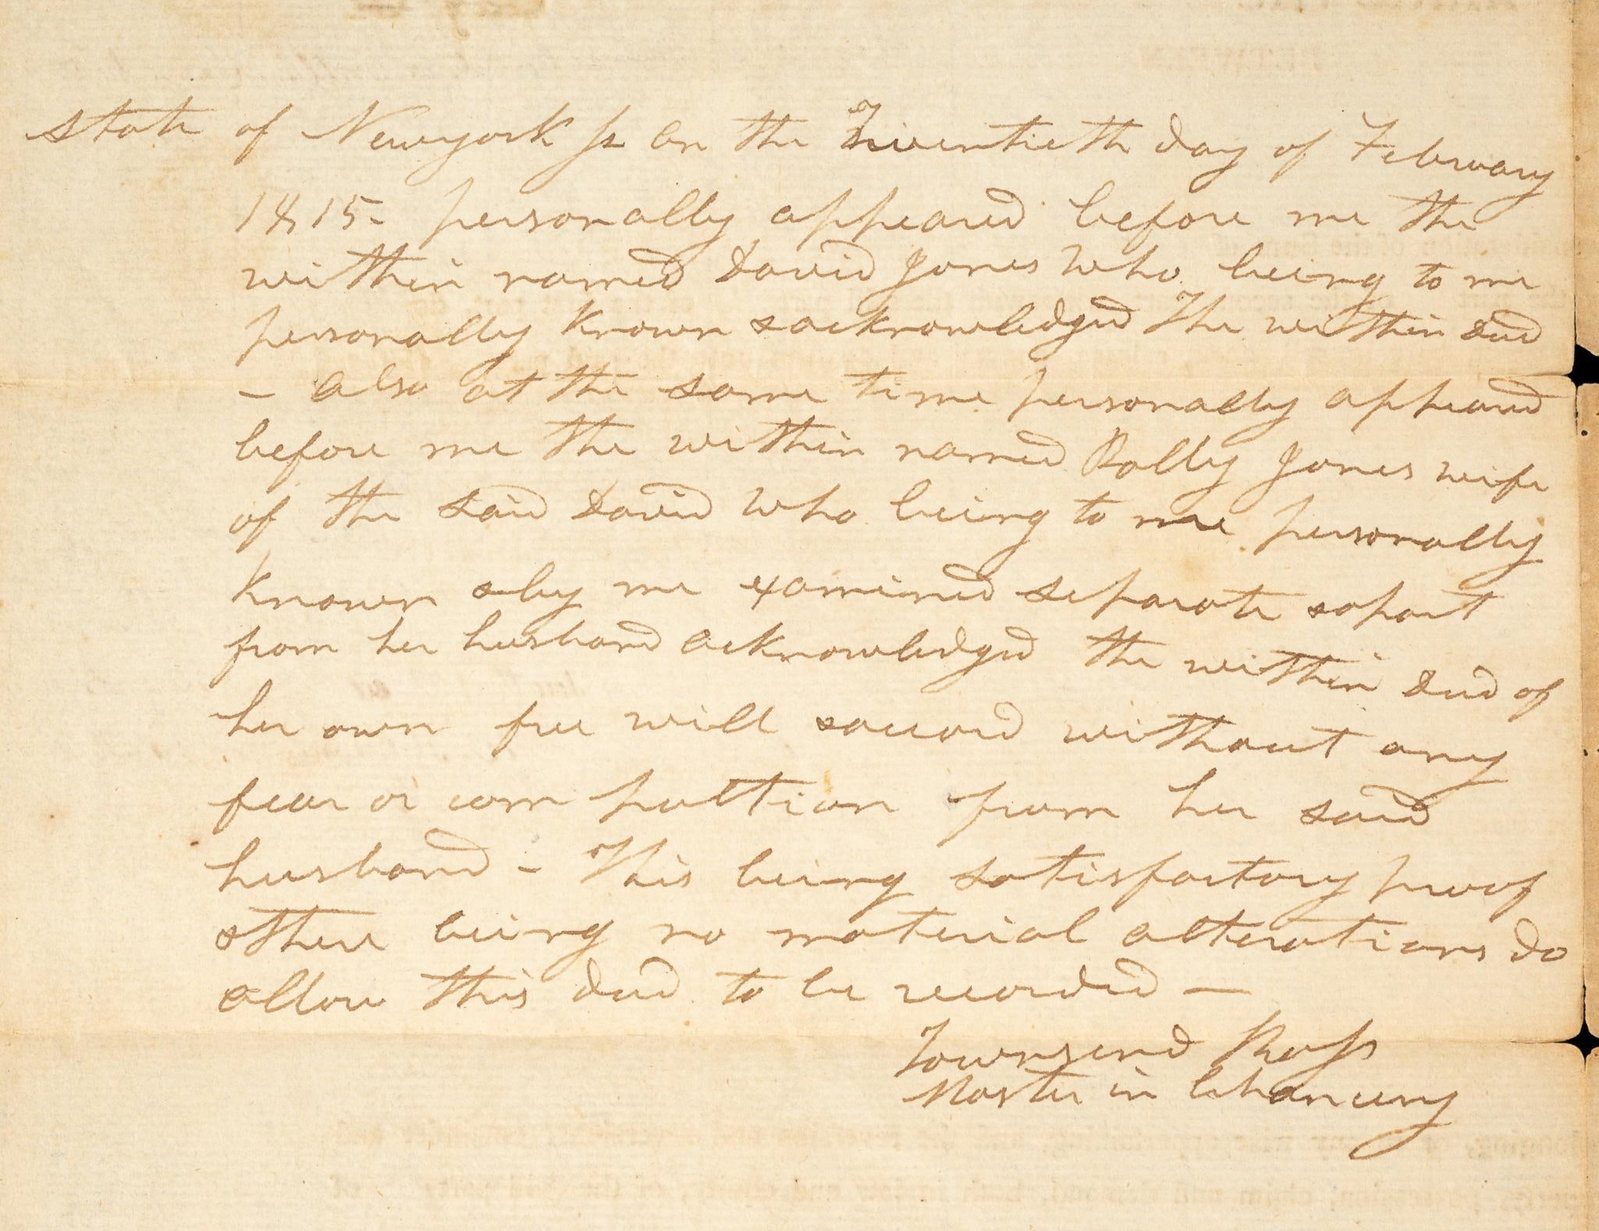 State of Newyork ss On the Twentieth day of February
1815- personally appeared before me the
within named David Jones who being to me
personally known & acknowledged The within deed
- Also at the same time personally appeared
before me the within named Polly Jones wife
of the said David who being to me personally
known & by me examined separate & apart
from her husband acknowledged the within deed of
her own free will & accord without any
fear or compultion from her said
husband - This being satisfactory proof
& there being no material alterations do
allow this deed to be recorded -
Townsend Ross
Master in Chancery